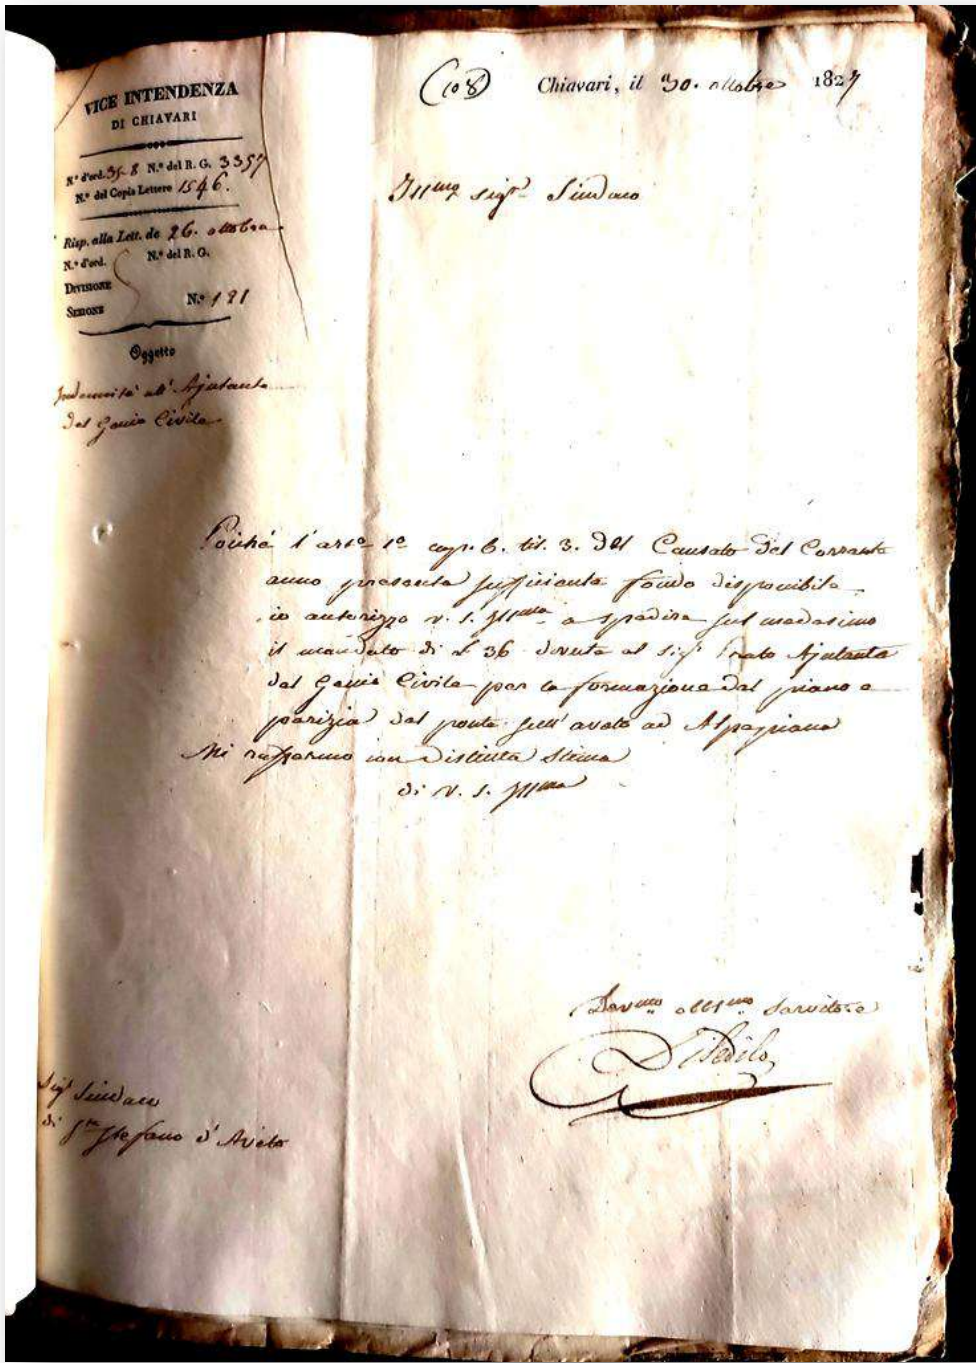 VICE INTENDENZA
DI CHIAVARI
N.° d'ord. 35-8 N.° del R. G. 3357
N.° del Copia Lettere 1546.
Risp. alla Lett. de 26. ottobre
N.° d'ord. N.° del R. G.
DIVISIONE
SEZIONE N.° 191
Oggetto
Indennità all' Ajutante
del Genio Civile
(108) Chiavari, il 30. ottobre 1827
Ill.mo Sig.r Sindaco
Poiché l'art.o 1.o cap. 6. tit. 3. del Causato del Corrente
anno presenta sufficiente fondo disponibile
io autorizzo V. S. Ill.ma a spedire sul medesimo
il mandato di £ 36 dovute al Sig.r Prato Ajutante
del Genio Civile per la formazione del piano e
perizia del ponte sull' aveto ad Alpepiana
Mi raffermo con distinta stima
di V. S. Ill.ma
Dev.mo obb.mo Servitore
Sig.r Sindaco
di S.to Stefano d' Aveto